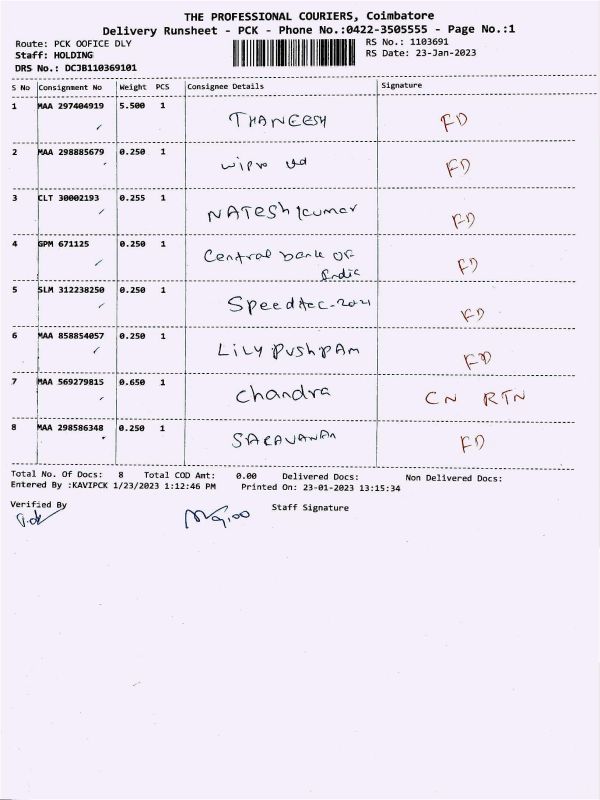 THE PROFESSIONAL COURIERS, Coimbatore
Delivery Runsheet - PCK - Phone No.:0422-3505555 - Page No.:1
Route: PCK OOFICE DLY RS No.: 1103691
Staff: HOLDING RS Date: 23-Jan-2023
DRS No.: DCJB110369101
S No Consignment No Weight PCS Consignee Details Signature
1 MAA 297404919 5.500 1 THANEESH FD
2 MAA 298885679 0.250 1 wipro ltd FD
3 CLT 30002193 0.255 1 NATEShkumar FD
4 GPM 671125 0.250 1 Central bank OF FD
India
5 SLM 312238250 0.250 1 Speedtec-2021 FD
6 MAA 858854057 0.250 1 LiLY PushpAm FD
7 MAA 569279815 0.650 1 Chandra CN RTN
8 MAA 298586348 0.250 1 SARAVANAN FD
Total No. Of Docs: 8 Total COD Amt: 0.00 Delivered Docs: Non Delivered Docs:
Entered By :KAVIPCK 1/23/2023 1:12:46 PM Printed On: 23-01-2023 13:15:34
Verified By Staff Signature